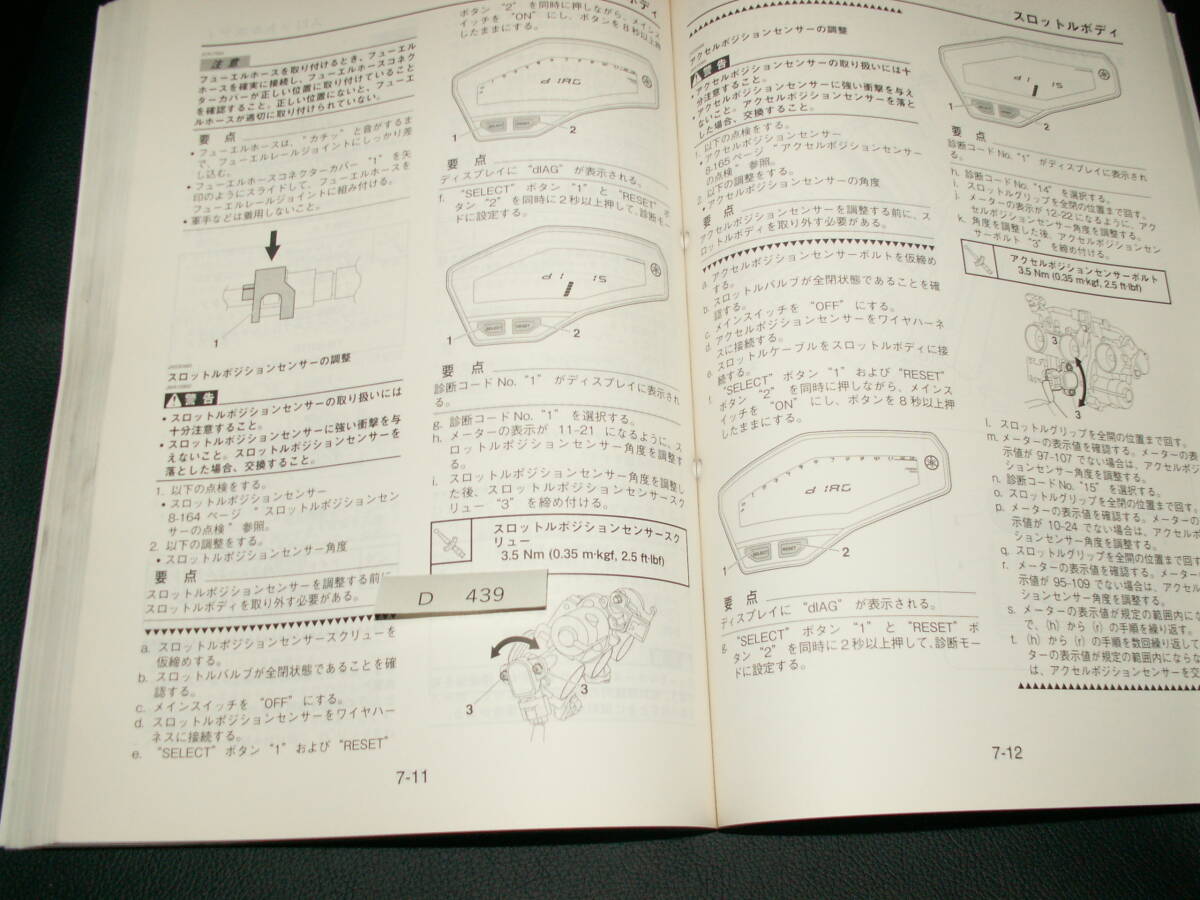 注意
フューエルホースを取り付けるとき、フューエル
ホースを確実に接続し、フューエルホースコネク
ターカバーが正しい位置に取り付けていること
を確認すること。正しい位置にないと、フューエ
ルホースが適切に取り付けられていない。
要点
・フューエルホースは、“カチッ” と音がするま
で、フューエルレールジョイントにしっかり差
し込む。
・フューエルホースコネクターカバー “1” を矢
印のようにスライドして、フューエルホースを
フューエルレールジョイントに組み付ける。
・軍手などは着用しないこと。
1
スロットルポジションセンサーの調整
警告
・スロットルポジションセンサーの取り扱いには
十分注意すること。
・スロットルポジションセンサーに強い衝撃を与
えないこと。スロットルポジションセンサーを
落とした場合、交換すること。
1. 以下の点検をする。
・スロットルポジションセンサー
8-164 ページ “スロットルポジションセン
サーの点検” 参照。
2. 以下の調整をする。
・スロットルポジションセンサー角度
要点
スロットルポジションセンサーを調整する前に
スロットルボディを取り外す必要がある。
a. スロットルポジションセンサースクリューを
仮締めする。
b. スロットルバルブが全閉状態であることを確
認する。
c. メインスイッチを “OFF” にする。
d. スロットルポジションセンサーをワイヤハー
ネスに接続する。
e. “SELECT” ボタン “1” および “RESET”
7-11
ボタン “2” を同時に押しながら、メインス
イッチを “ON” にし、ボタンを8秒以上押
したままにする。
dIAG
SELECT
RESET
1
2
要点
ディスプレイに “dIAG” が表示される。
f. “SELECT” ボタン “1” と “RESET” ボ
タン “2” を同時に2秒以上押して、診断モー
ドに設定する。
dI 15
1
SELECT
RESET
1
2
要点
診断コード No. “1” がディスプレイに表示され
る。
g. 診断コード No. “1” を選択する。
h. メーターの表示が 11-21 になるように、ス
ロットルポジションセンサー角度を調整す
る。
i. スロットルポジションセンサー角度を調整し
た後、スロットルポジションセンサースク
リュー “3” を締め付ける。
スロットルポジションセンサースク
リュー
3.5 Nm (0.35 m·kgf, 2.5 ft·lbf)
D 439
3
3
スロットルボディ
アクセルポジションセンサーの調整
警告
・アクセルポジションセンサーの取り扱いには十
分注意すること。
・アクセルポジションセンサーに強い衝撃を与え
ないこと。アクセルポジションセンサーを落と
した場合、交換すること。
1. 以下の点検をする。
・アクセルポジションセンサー
8-165ページ “アクセルポジションセンサー
の点検” 参照。
2. 以下の調整をする。
・アクセルポジションセンサーの角度
要点
アクセルポジションセンサーを調整する前に、ス
ロットルボディを取り外す必要がある。
a. アクセルポジションセンサーボルトを仮締め
する。
b. スロットルバルブが全閉状態であることを確
認する。
c. メインスイッチを “OFF” にする。
d. アクセルポジションセンサーをワイヤハーネ
スに接続する。
e. スロットルケーブルをスロットルボディに接
続する。
f. “SELECT” ボタン “1” および “RESET”
ボタン “2” を同時に押しながら、メインス
イッチを “ON” にし、ボタンを8秒以上押
したままにする。
dIAG
SELECT
RESET
1
2
要点
ディスプレイに “dIAG” が表示される。
g. “SELECT” ボタン “1” と “RESET” ボ
タン “2” を同時に2秒以上押して、診断モー
ドに設定する。
dI 15
1
1
2
要点
診断コード No. “1” がディスプレイに表示され
る。
h. 診断コード No. “14” を選択する。
i. スロットルグリップを全閉の位置まで回す。
j. メーターの表示が12-22になるように、アク
セルポジションセンサー角度を調整する。
k. 角度を調整した後、アクセルポジションセン
サーボルト “3” を締め付ける。
アクセルポジションセンサーボルト
3.5 Nm (0.35 m·kgf, 2.5 ft·lbf)
3
3
l. スロットルグリップを全開の位置まで回す。
m. メーターの表示値を確認する。メーターの表
示値が 97-107 でない場合は、アクセルポジ
ションセンサー角度を調整する。
n. 診断コード No. “15” を選択する。
o. スロットルグリップを全閉の位置まで回す。
p. メーターの表示値を確認する。メーターの
示値が 10-24 でない場合は、アクセルポ
ションセンサー角度を調整する。
q. スロットルグリップを全開の位置まで回す
r. メーターの表示値を確認する。メーター
示値が 95-109 でない場合は、アクセル
ションセンサー角度を調整する。
s. メーターの表示値が規定の範囲内にな
で、(h) から (r) の手順を繰り返す。
t. (h) から (r) の手順を数回繰り返して
ターの表示値が規定の範囲内にならな
は、アクセルポジションセンサーを交
7-12